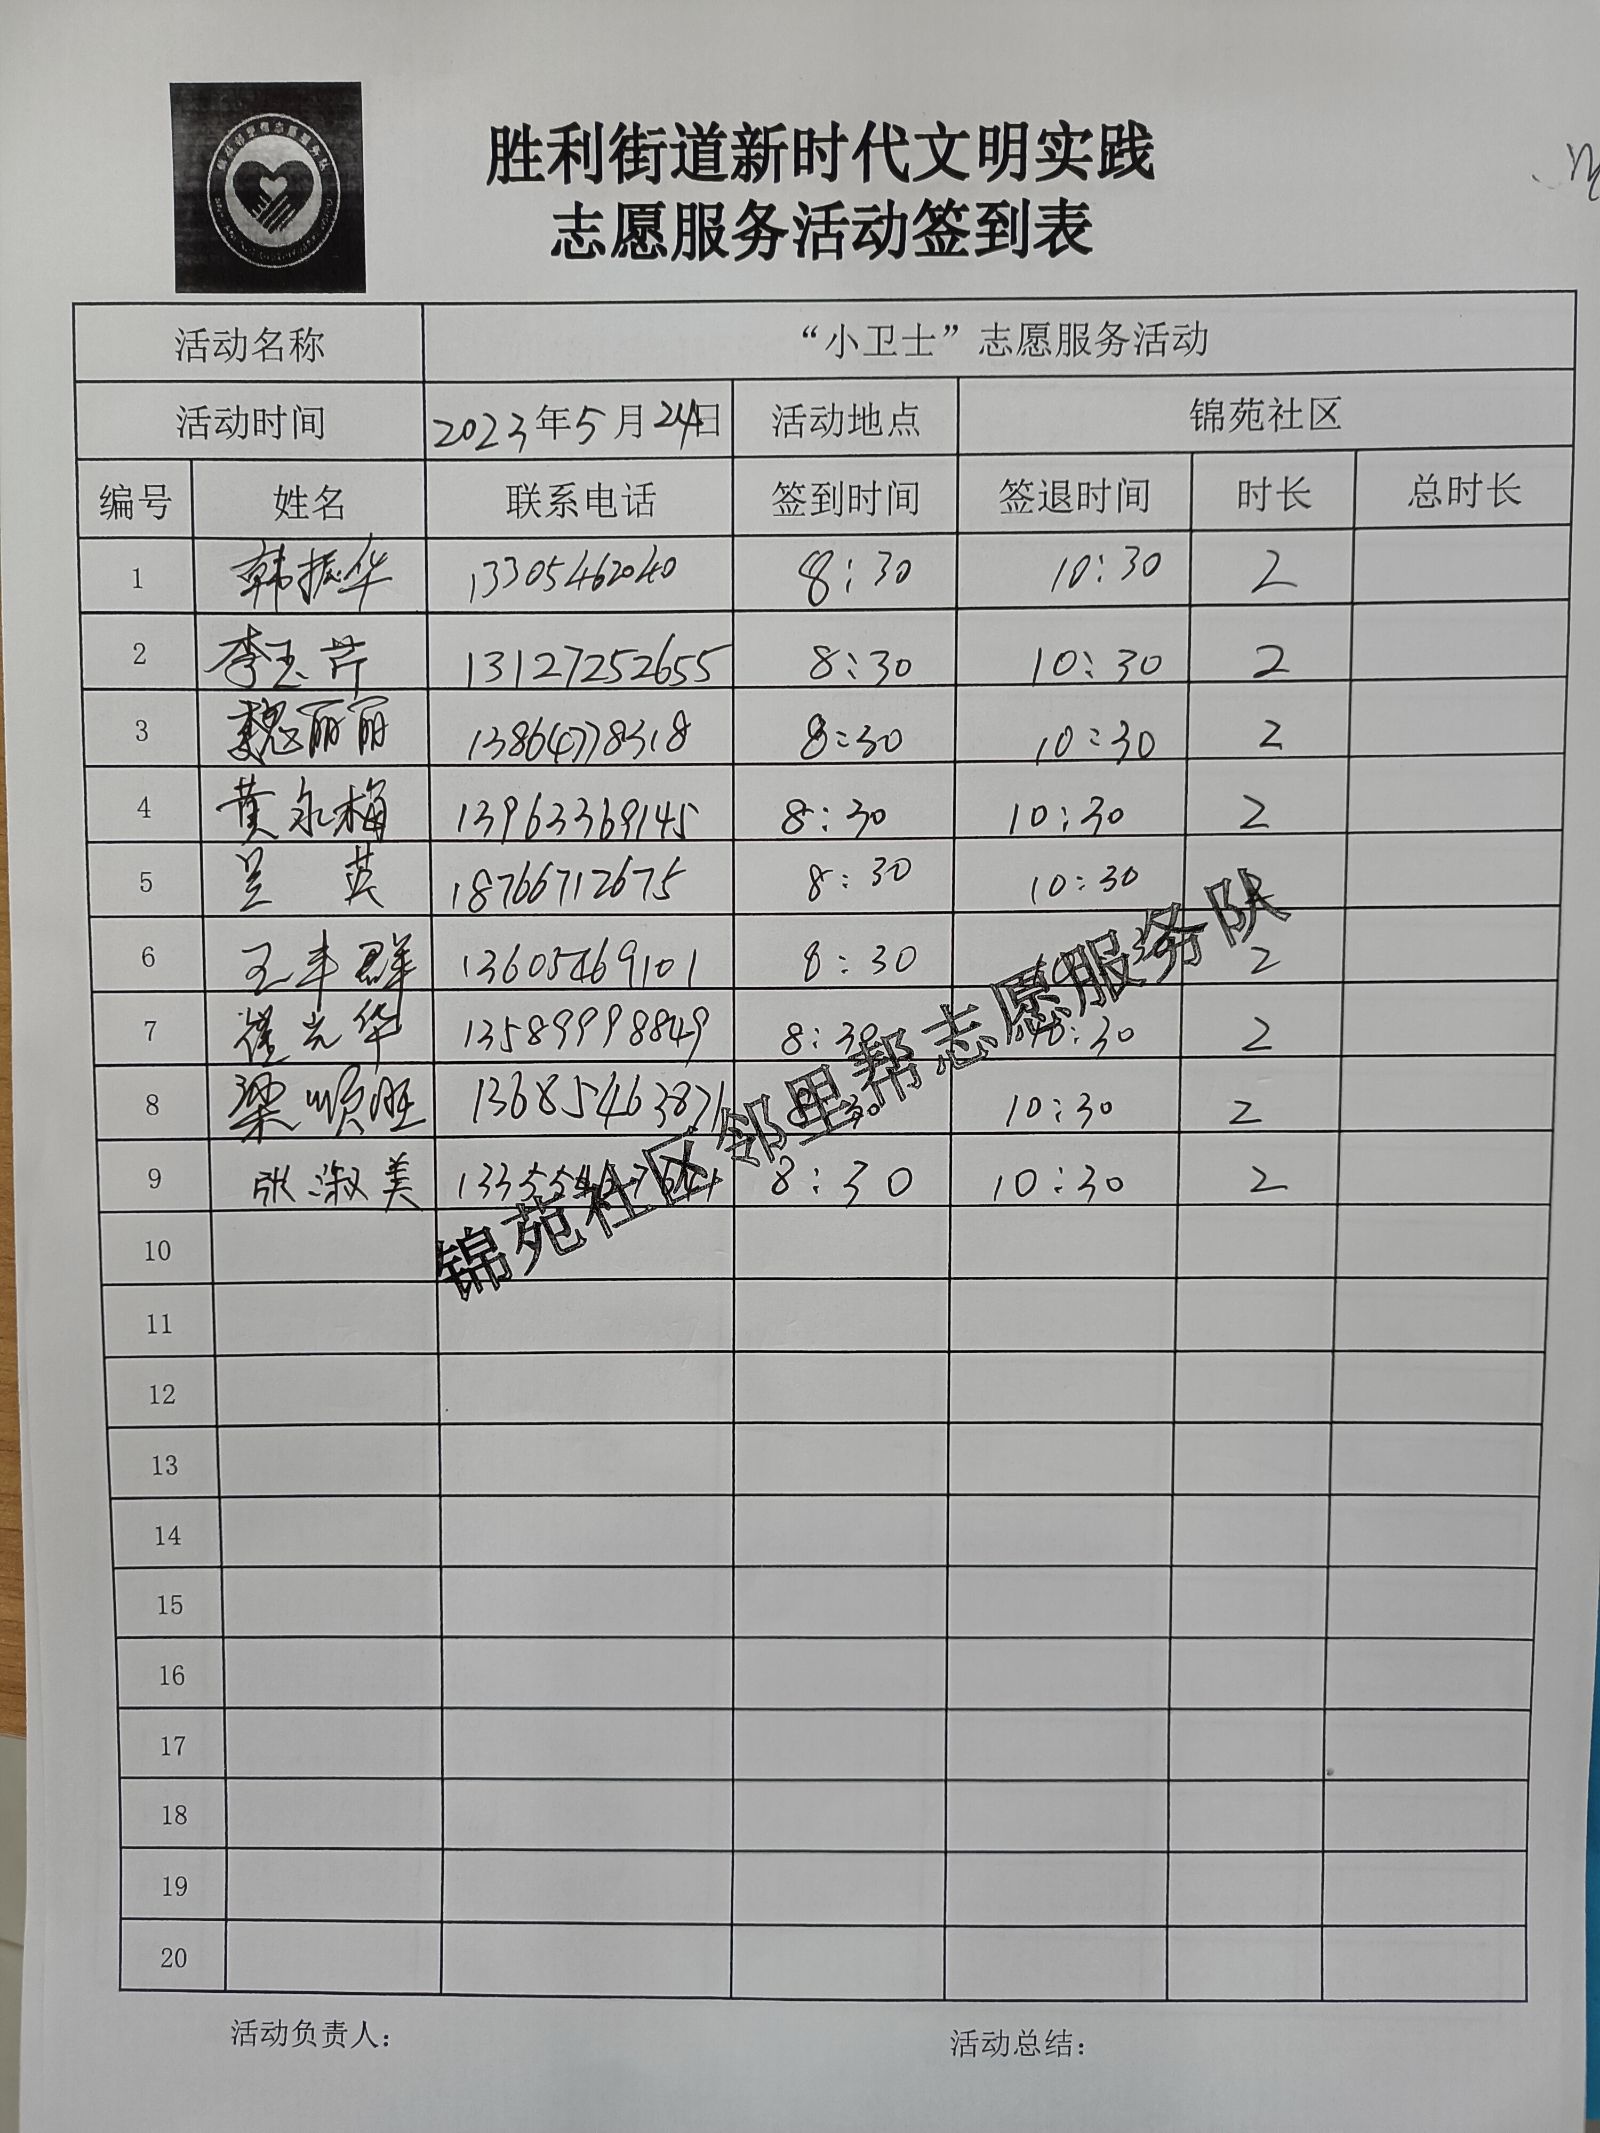 胜利街道新时代文明实践
志愿服务活动签到表
活动名称 “小卫士”志愿服务活动
活动时间 2023年5月24日 活动地点 锦苑社区
编号 姓名 联系电话 签到时间 签退时间 时长 总时长
1 韩振华 13305462040 8:30 10:30 2
2 李玉芹 13127252655 8:30 10:30 2
3 魏丽丽 13864778318 8:30 10:30 2
4 黄永梅 13963369145 8:30 10:30 2
5 吴英 18766712675 8:30 10:30
6 王丰群 13605469101 8:30 2
7 崔光华 13589998849 8:30 10:30 2
8 梁顺旺 13685463871 8:30 10:30 2
9 张淑美 8:30 10:30 2
锦苑社区邻里帮志愿服务队
10
11
12
13
14
15
16
17
18
19
20
活动负责人： 活动总结：